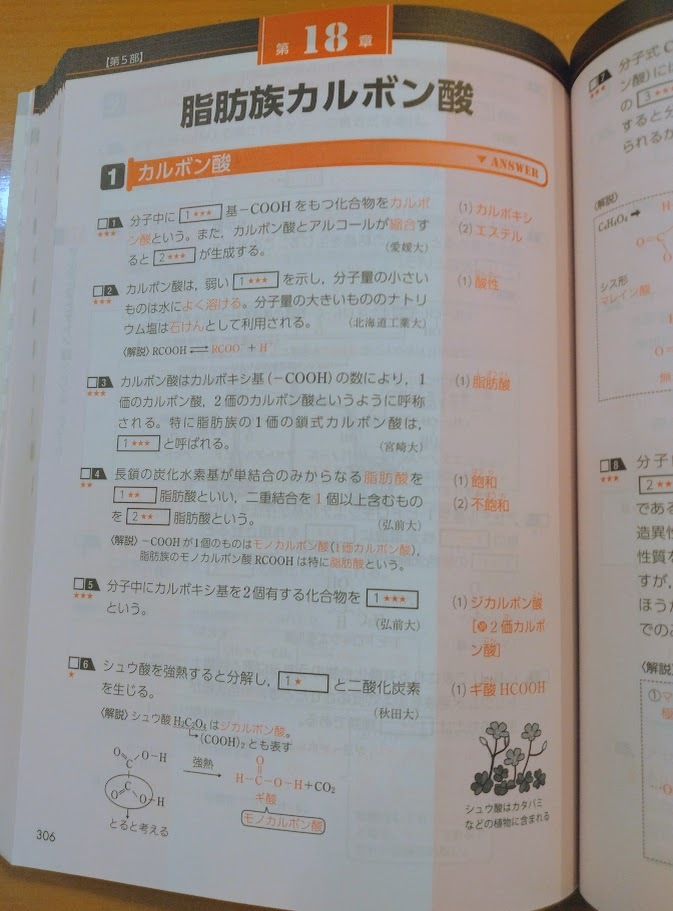 【第5部】
第 18 章
脂肪族カルボン酸
1 カルボン酸
▼ ANSWER
1 分子中に 1 ★★★ 基-COOHをもつ化合物をカルボ
★★★ ン酸という。また，カルボン酸とアルコールが縮合す
ると 2 ★★★ が生成する。 (愛媛大)
(1) カルボキシ
(2) エステル
2 カルボン酸は，弱い 1 ★★★ を示し，分子量の小さい
★★★ ものは水によく溶ける。分子量の大きいもののナトリ
ウム塩は石けんとして利用される。 (北海道工業大)
〈解説〉RCOOH ⇄ RCOO⁻ + H⁺
(1) 酸性
3 カルボン酸はカルボキシ基(-COOH)の数により，1
★★★ 価のカルボン酸，2価のカルボン酸というように呼称
される。特に脂肪族の1価の鎖式カルボン酸は，
1 ★★★ と呼ばれる。 (宮崎大)
(1) 脂肪酸
4 長鎖の炭化水素基が単結合のみからなる脂肪酸を
★★ 1 ★★ 脂肪酸といい，二重結合を1個以上含むもの
を 2 ★★ 脂肪酸という。 (弘前大)
〈解説〉-COOHが1個のものはモノカルボン酸(1価カルボン酸)，
脂肪族のモノカルボン酸RCOOHは特に脂肪酸という。
(1) 飽和
(2) 不飽和
5 分子中にカルボキシ基を2個有する化合物を 1 ★★★
★★★ という。 (弘前大)
(1) ジカルボン酸
[㊙2価カルボ
ン酸]
6 シュウ酸を強熱すると分解し， 1 ★ と二酸化炭素
★ を生じる。 (秋田大)
(1) ギ酸HCOOH
〈解説〉シュウ酸H₂C₂O₄はジカルボン酸。
(COOH)₂とも表す
O C O-H
O C O-H
とると考える
強熱
O
H-C-O-H+CO₂
ギ酸
モノカルボン酸
シュウ酸はカタバミ
などの植物に含まれる
306
7 分子式C
★★★ ン酸)に
の 3
すると
られるか
〈解説〉
C₄H₄O₄ ➡ H
O=C
シス形
マレイン酸
8 分子
2 ★★
である
造異性
性質を
すが，
ほうか
でのみ
〈解説〉
①マ